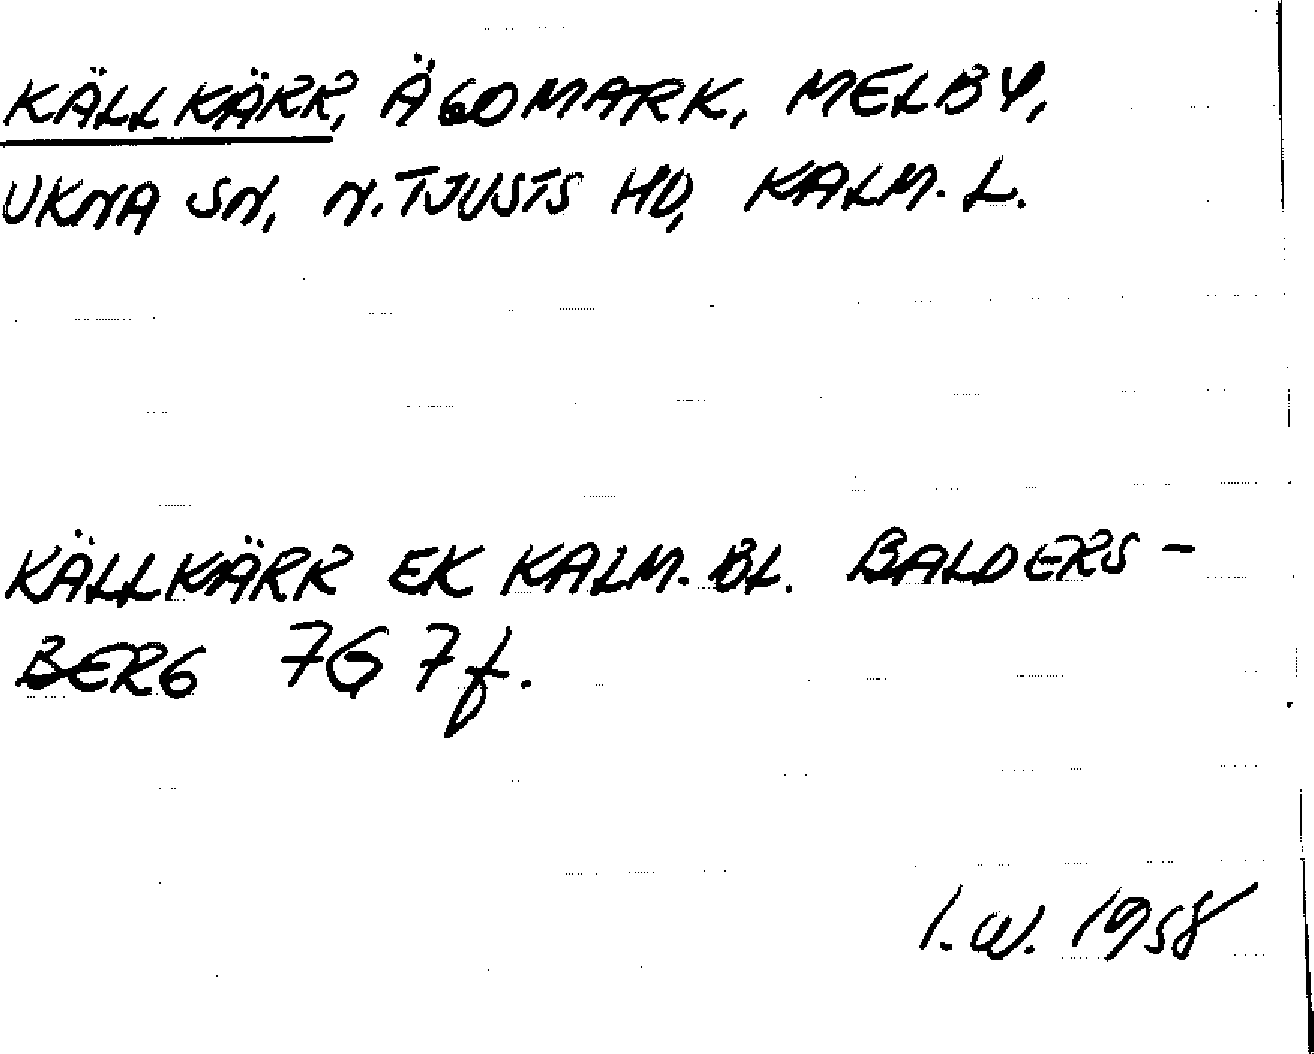 KÄLLKÄRR, ÄGOMARK, MELBY,
UKNA SN, N. TJUSTS HD, KALM. L.
KÄLLKÄRR EK KALM. BL. BALDERS-
BERG 7G 7f.
I. W. 1958